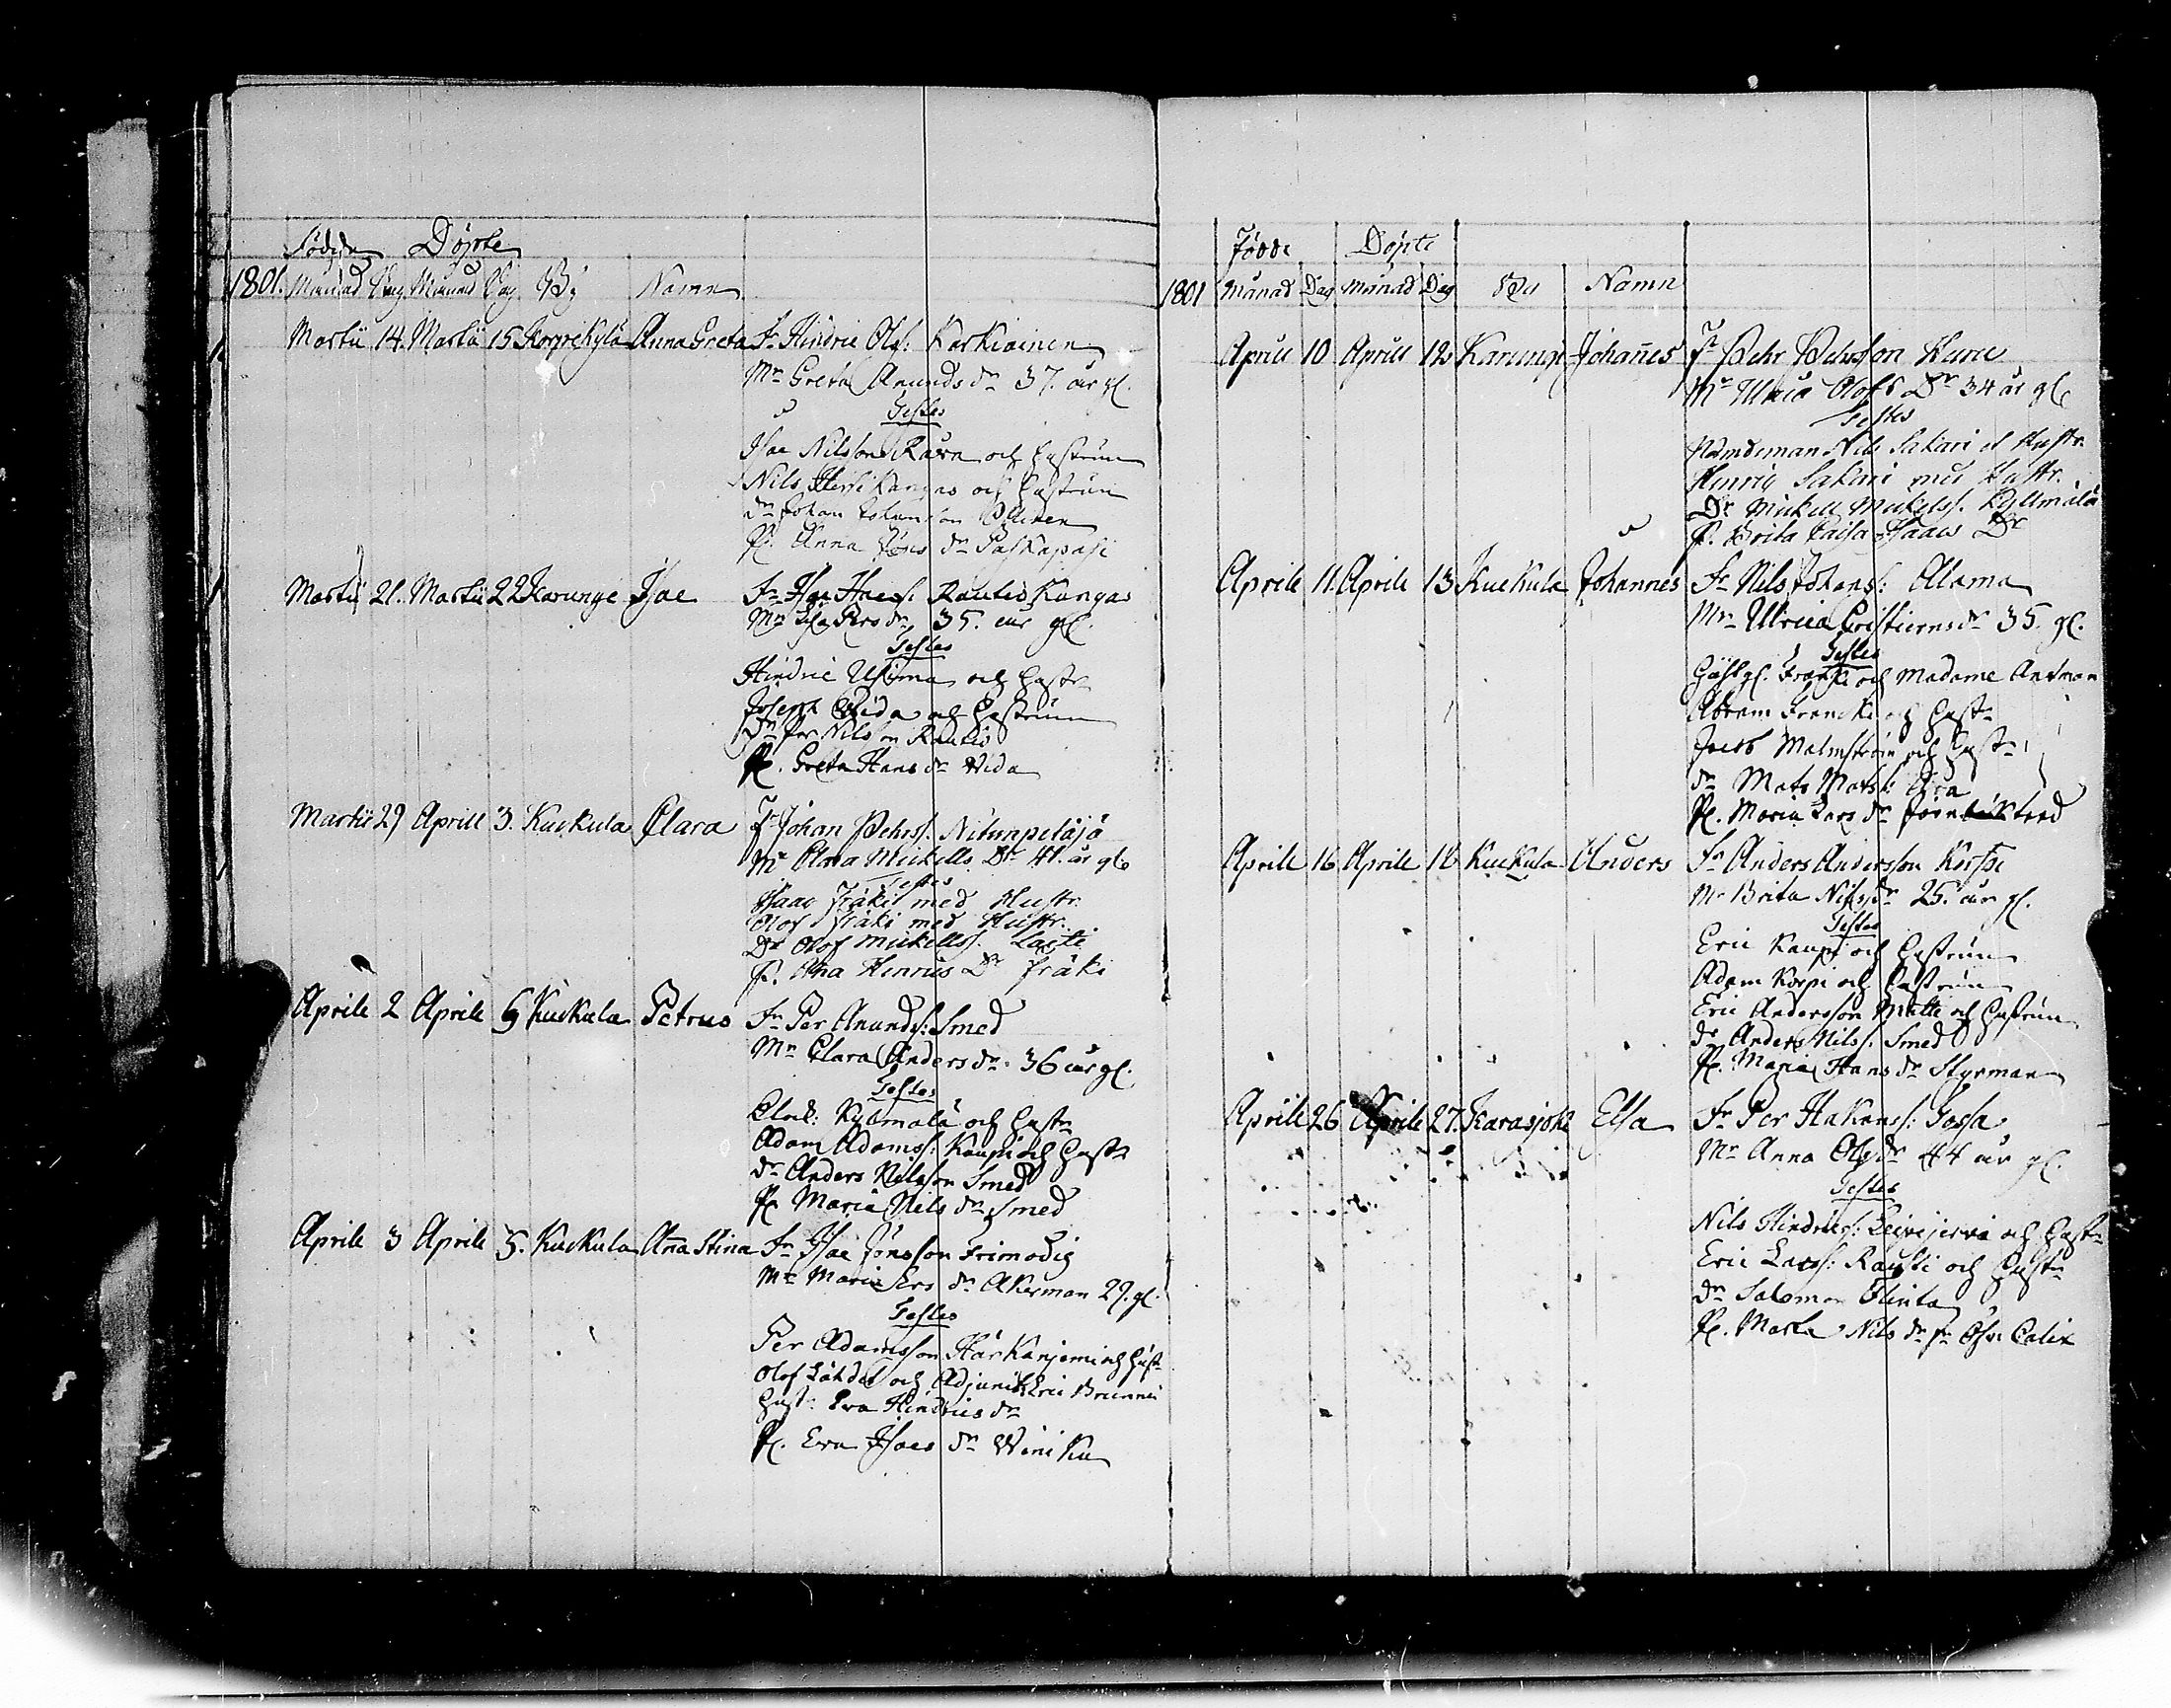 Födde Döpte
1801. Månad Dag Månad Dag By Namn
Martii 14. Martii 15 Korpikylä Anna Greta Fr Hindric Ols: Karkiainen
Mr Greta Anunds dr 37. år gl.
Testes
Isac Nilsson Rava och Hustrun
Nils Kangas och Hustrun
dr Johan Johansson
P. Anna Jöns dr Palkapasi
Martii 21. Martii 22 Karunge Isac Fr Isac Isacs. Rautio Kangas
Mr Pers dr 35. år gl.
Testes
Hindric Uhima och Hustr
Joseph Vida och Hustrun
Dr Per Nilsson Rautio
P. Greta Hans dr Vida
Martii 29 Aprill 3. Kuckula Clara Fr Johan Pehrss. Niturnpeläjä
Mr Anna Mickells Dr 41. år gl
Testes
Isaac Fräki med Hustr.
Olof Fräki med Hustr.
Dr Olof Mickellss. Laiti
P. Anna Hinrics Dr Fräki
Aprile 2 Aprile 6 Kuckula Petrus Fr Per Anunds: Smed
Mr Clara Anders dr. 36 år gl.
Testes
Clock: Kylmälä och Hustr
Adam Adamss: Kaupi och Hustr
dr Anders Nilsson Smed
P. Maria Nils dr Smed
Aprile 3 Aprile 5. Kuckula Anna Stina Fr Isac Jönsson Frimodig
Mr Maria Ers dr Akerman 29. gl.
Testes
Per Adamsson Harkanjemi och Hust
Olof Lahdet och Adjunct Eric Brunnii
Hust: Eva Hindrics dr
P. Eva Isacs dr Winika
Födde Döpte
1801 Månad Dag Månad Dag By Namn
Aprill 10 Aprill 12 Karungi Johannes Fr Pehr Pehrsson Kure
Mr Ulrica Olofs Dr 34 år gl
Testes
Nämdeman Nils Sakari och Hustr.
Henric Sakari med Hustr.
Dr Mickell Mickelss. Kyllmälä
P. Brita Caisa Isaacs Dr
Aprile 11. Aprile 13 Kuckula Johannes Fr Nils Johans: Alama
Mr Ulrica Cristierns dr 35. gl.
Testes
Franki och Madame Antman
Abram Francki och Hustr
Jacob Malmström och Hustr
dr Mats Matss:
P. Maria Lars dr
Aprile 16 Aprile 18 Kuckula Anders Fr Anders Andersson Korpi
Mr Brita Nilss dr 25. år gl.
Testes
Eric Kaupi och Hustrun
Adam Korpi och Hustrun
Eric Andersson Matti och Hustrun
dr Anders Nilss. Smed
P. Maria Hans dr Styrman
Aprile 26 Aprile 27. Karasjoki Elsa Fr Per Hakans: Gossa
Mr Anna Ols dr 44 år gl.
Testes
Nils Hindrics: Leipejervi och Hustr
Eric Larss: Rauski och Hustr
dr Salomon Olinta
P. Marta Nils dr fr Öfr Calix